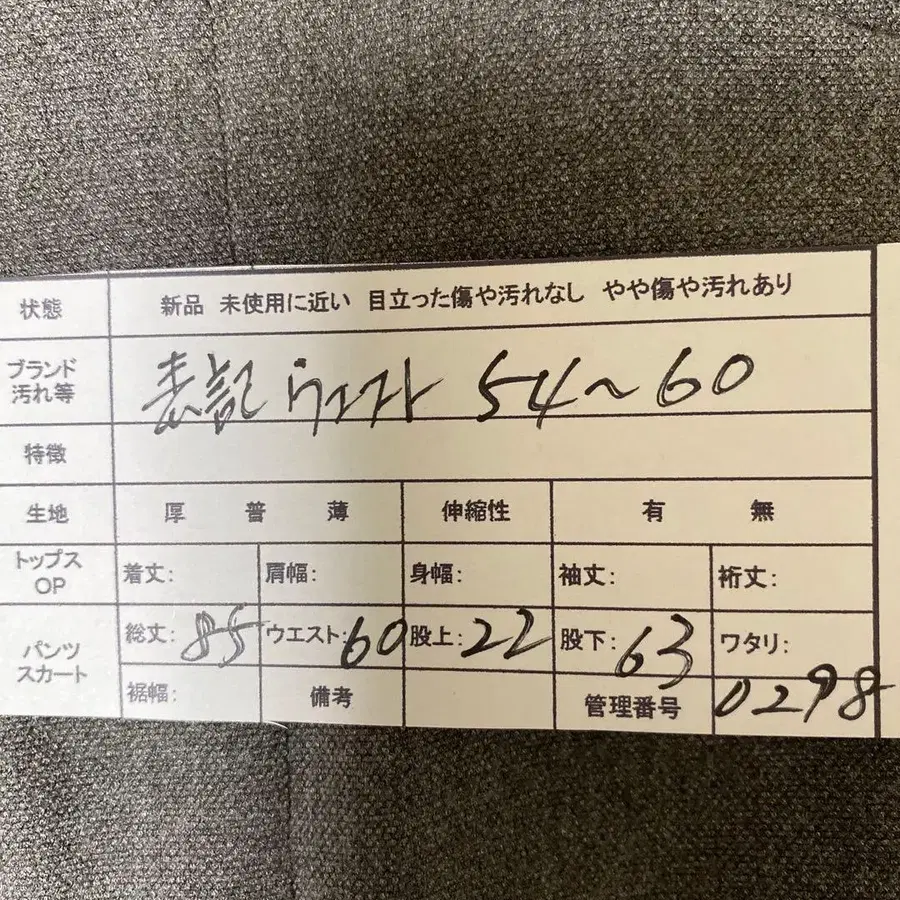 状態 新品 未使用に近い 目立った傷や汚れなし やや傷や汚れあり
ブランド 汚れ等 表記 ウエスト 54~60
特徴
生地 厚 普 薄 伸縮性 有 無
トップス OP 着丈: 肩幅: 身幅: 袖丈: 裄丈:
パンツ スカート 総丈: 85 ウエスト: 60 股上: 22 股下: 63 ワタリ:
裾幅: 備考 管理番号 0298